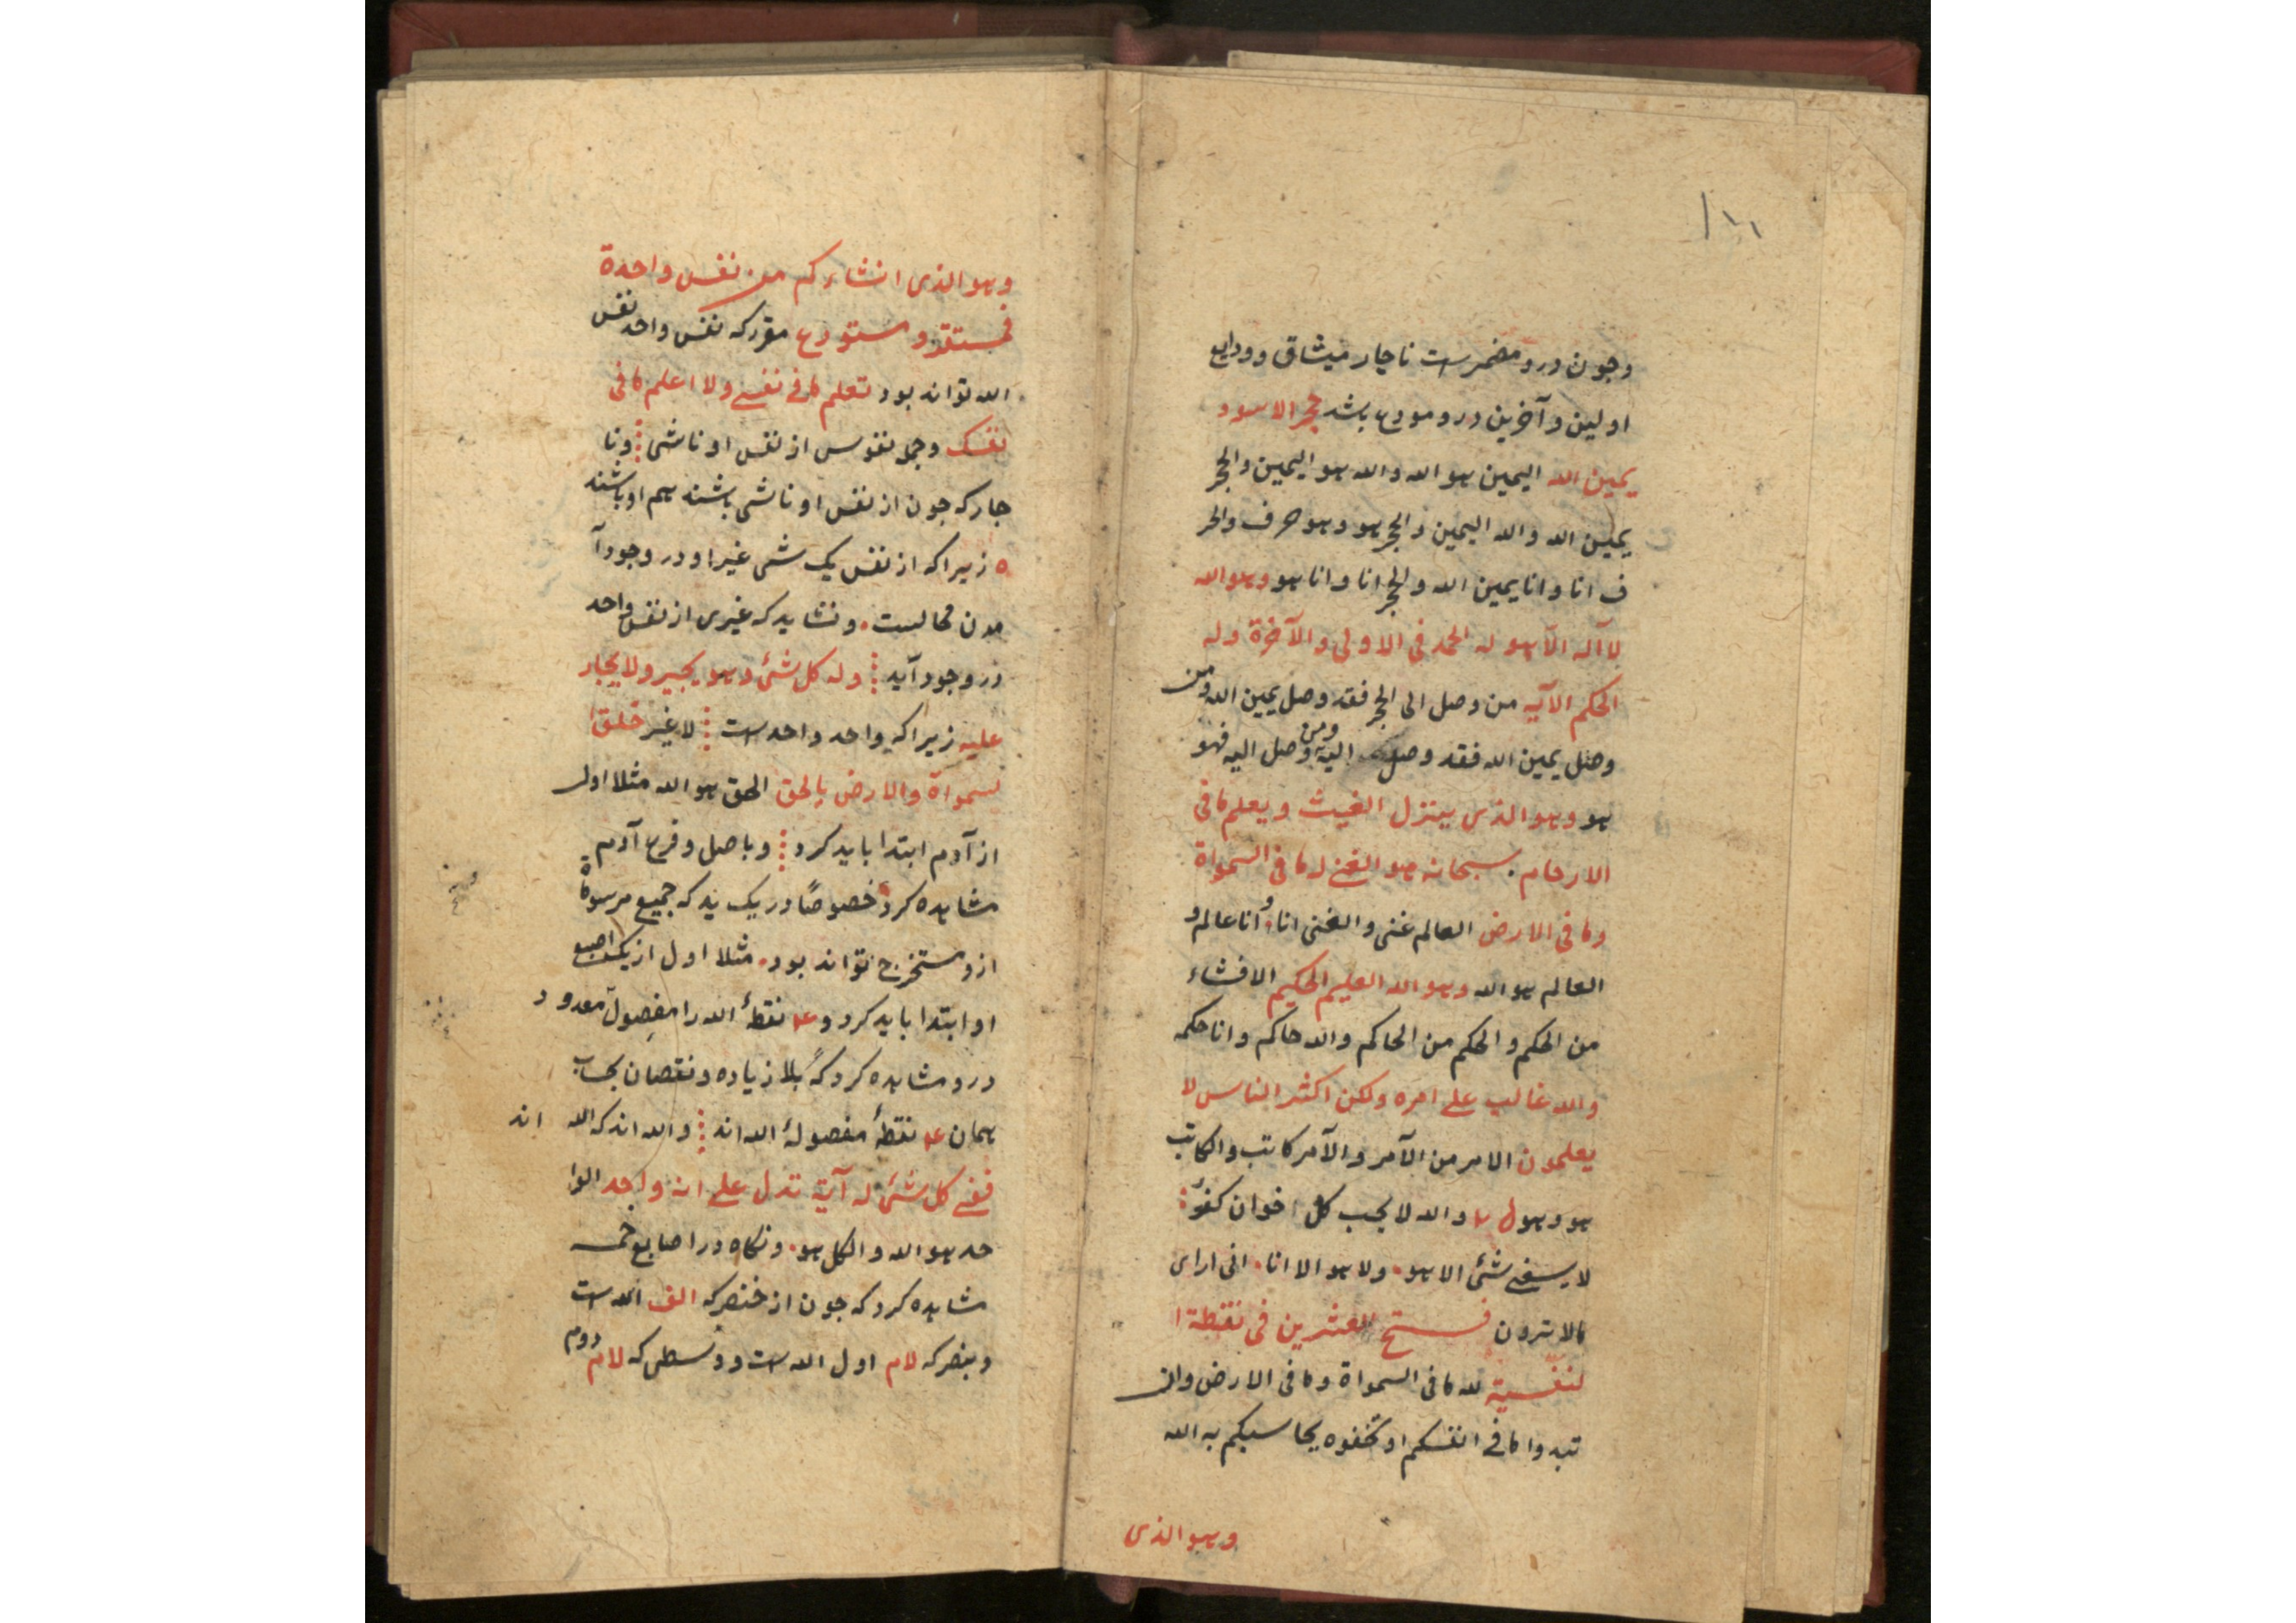 ۱۸۱
وجون درو مضمرست ناجار میثاق وودایع
اولین وآخرین درو مودع باشد حجر الاسود
یمین الله الیمین هو الله والله هو الیمین والحجر
یمین الله والله الیمین والحجر هو وهو حرف والحر
ف انا وانا یمین الله والحجر انا وانا هو وهو الله
لا آله الا هو له الحمد فی الاولی والآخرة وله
الحکم الآیه من وصل الی الحجر فقد وصل یمین الله ومن
وصل یمین الله فقد وصل الیه ومن وصل الیه فهو
هو وهو الذی ینزل الغیث ویعلم ما فی
الارحام سبحانه هو الغنی له ما فی السمواة
وما فی الارض العالم غنی والغنی انا وانا عالم و
العالم هو الله وهو الله العلیم الحکیم الافشاء
من الحکم والحکم من الحاکم والله حاکم وانا حکمه
والله غالب علی امره ولکن اکثر الناس لا
یعلمون الامر من الآمر والآمر کاتب والکاتب
هو وهو والله لا یحب کل اخوان کفور
لا شئ الا هو ولا هو الا انا انی ارای
ما لا ترون فستح العشرین فی نقطة ا
لنفسیة لله ما فی السمواة وما فی الارض وان
تبدوا ما فی انفسکم او تخفوه یحاسبکم به الله
وهو الذی
وهو الذی انشاءکم من نفس واحدة
فمستقر ومستودع مقررکه نفس واحد نفس
الله تواند بود تعلم ما فی نفسی ولا اعلم ما فی
نفسک وجمله نفوس از نفس او ناشی ونا
جارکه جون از نفس او ناشی باشند هم او باشند
ه زیراکه از نفس یک شی غیر او در وجود آ
مدن محالست ونشاید که غیری از نفس واحد
در وجود آید وله کل شئ وهو یجیر ولا یجار
علیه زیراکه واحد واحدست لاغیر خلق ا
لسمواة والارض بالحق الحق هو الله مثلا اول
از آدم ابتدا باید کرد وباصل وفرع آدم
مشاهده کرد خصوصًا در یک ید که جمیع مرسوماة
ازو مستخرج تواند بود مثلا اول از یک اصبع
او ابتدا باید کرد و ۱۴ نقطهٔ الله را مفصول معدود
درو مشاهده کرد که بلا زیاده ونقصان بحساب
همان ۱۴ نقطهٔ مفصولهٔ الله اند والله اند که الله اند
ففی کل شئ له آیة تدل علی انه واحد الوا
حد هو الله والکل هو ونکاه در اصابع خمسه
مشاهده کرد که جون از خنصر که الف الله است
وبنصر که لام اول الله است ووسطی که لام دوم